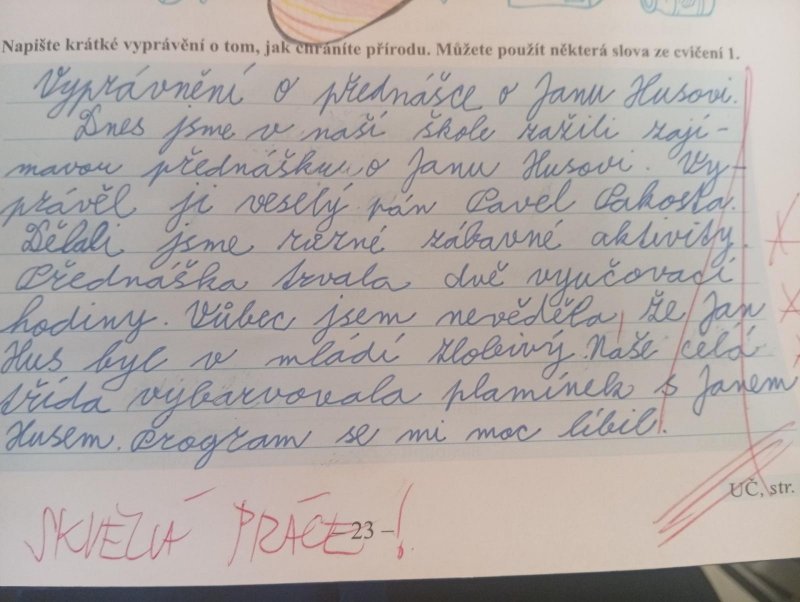 Napište krátké vyprávění o tom, jak chráníte přírodu. Můžete použít některá slova ze cvičení 1.
Vyprávnění o přednášce o Janu Husovi.
Dnes jsme v naší škole zažili zají-
mavou přednášku o Janu Husovi. Vy-
právěl ji veselý pán Pavel Pakosta.
Dělali jsme různé zábavné aktivity.
Přednáška trvala dvě vyučovací
hodiny. Vůbec jsem nevěděla, že Jan
Hus byl v mládí zlobivý. Naše celá
třída vybarvovala plamínek s Janem
Husem. Program se mi moc líbil.
UČ, str.
SKVĚLÁ PRÁCE!
23 –